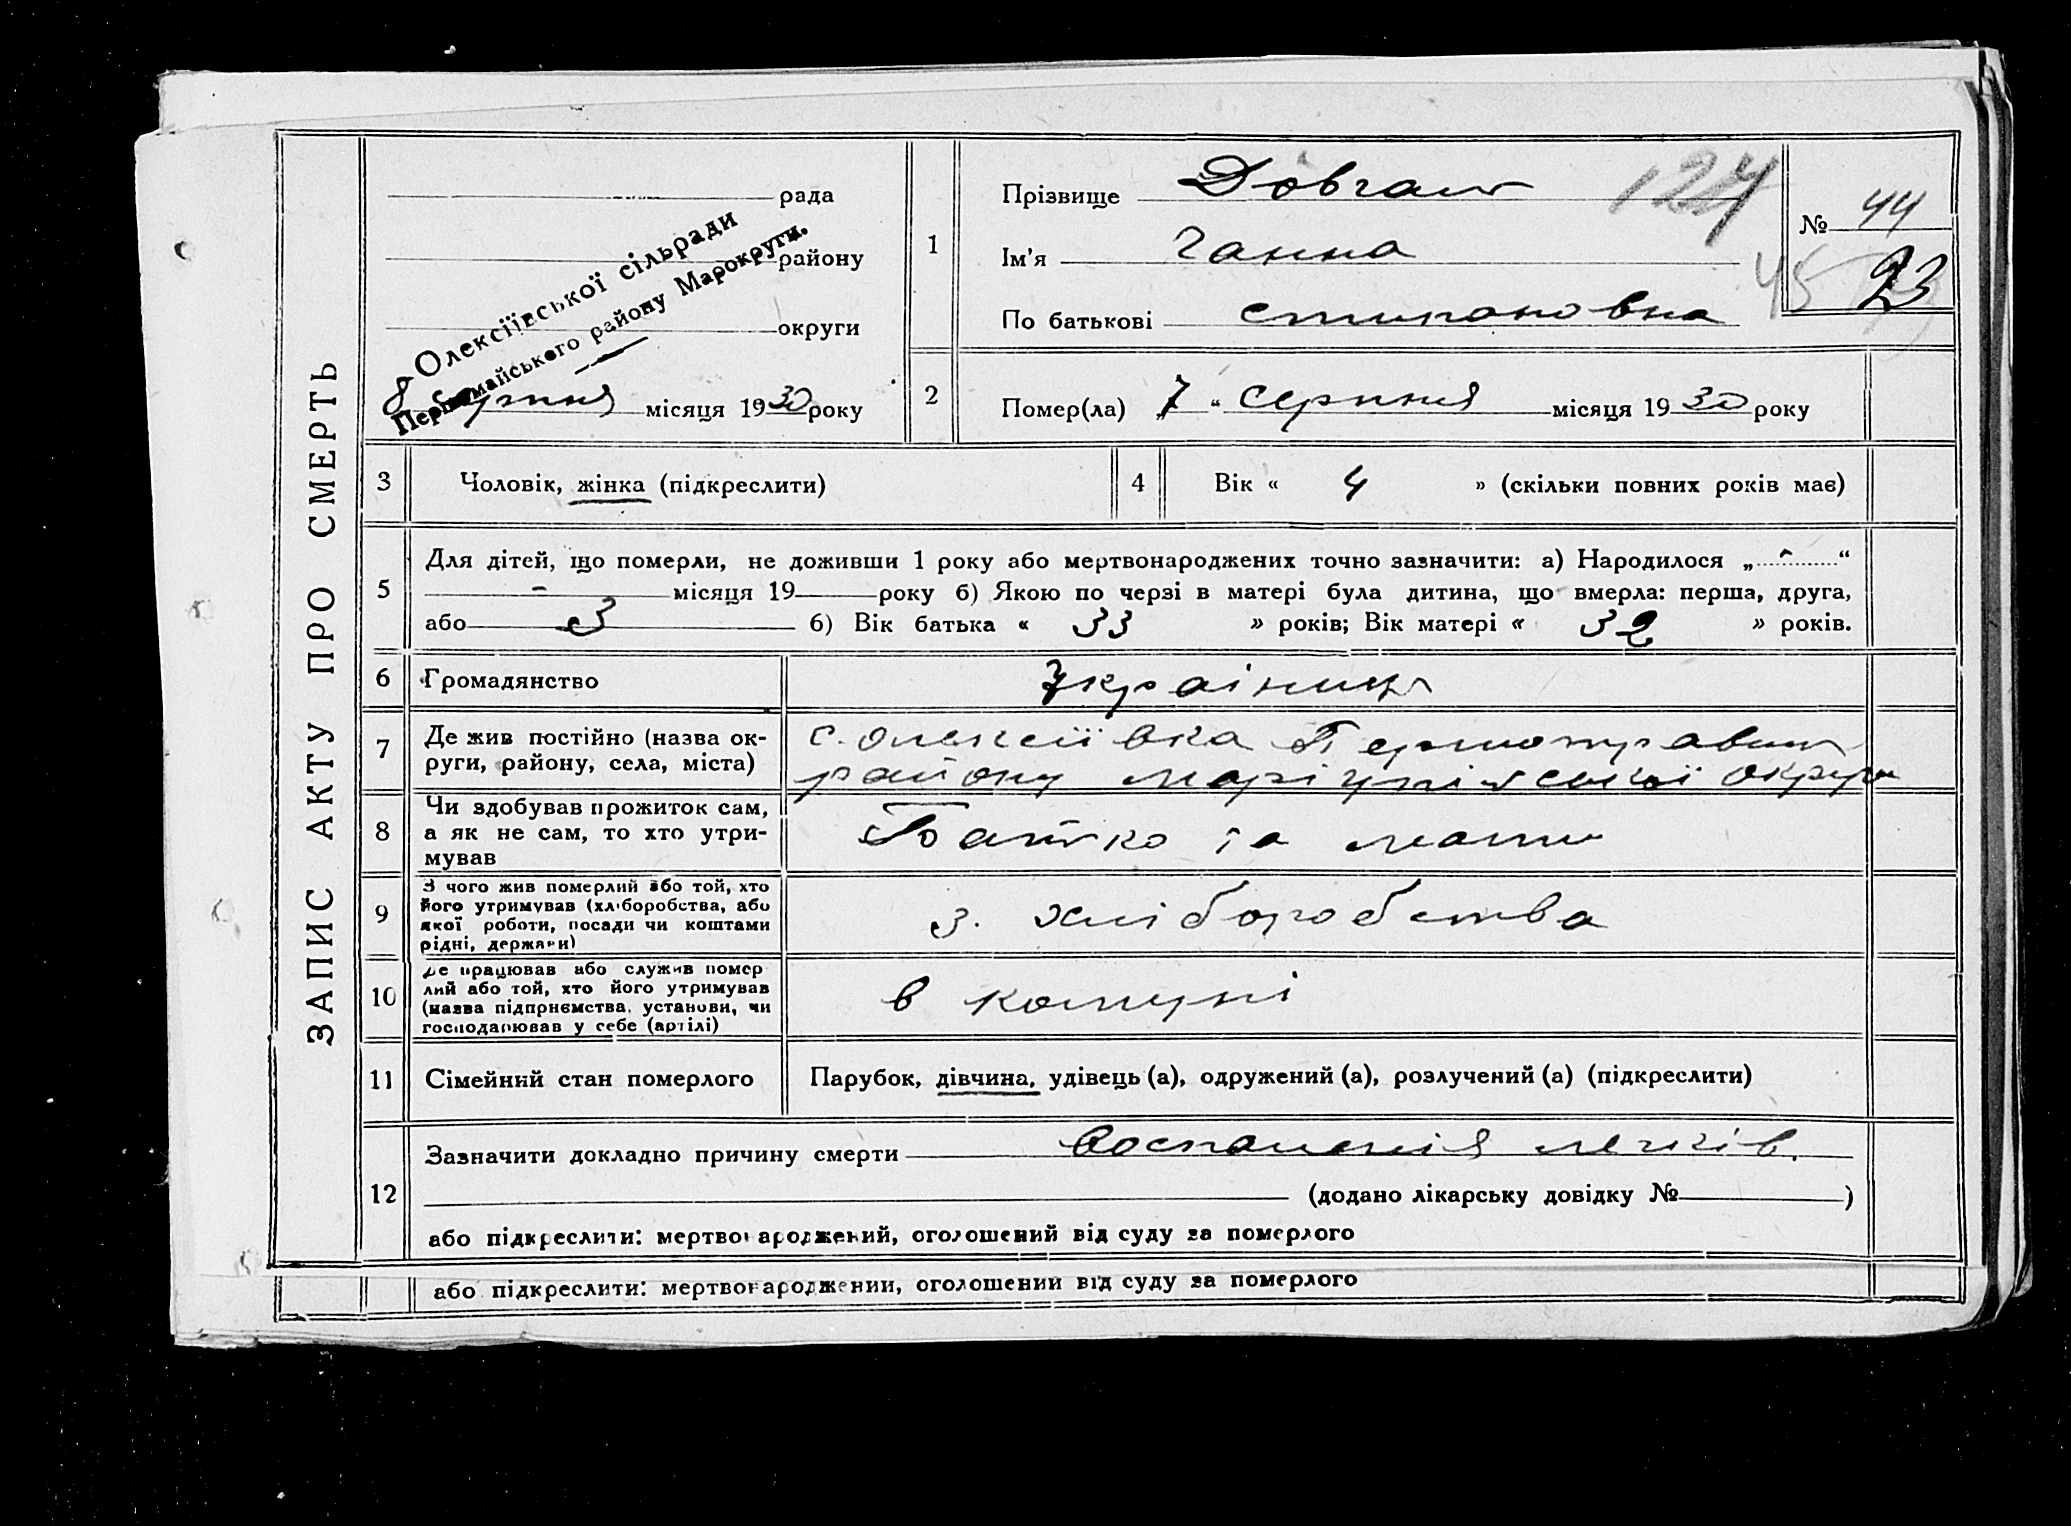 ЗАПИС АКТУ ПРО СМЕРТЬ
рада
району
округи
Олексіївської сільради
Першомайського району Марокруги.
8 серпня місяця 1930 року
1
Прізвище Довгаш
Ім'я Ганна
По батькові Степановна
124
№ 44
45 23
2
Помер(ла) 7 " серпня місяця 1930 року
3
Чоловік, жінка (підкреслити)
4
Вік « 4 » (скільки повних років має)
5
Для дітей, що померли, не доживши 1 року або мертвонароджених точно зазначити: а) Народилося „ - “
- місяця 19 року б) Якою по черзі в матері була дитина, що вмерла: перша, друга,
або 3 б) Вік батька « 33 » років; Вік матері « 32 » років.
6
Громадянство
Українці
7
Де жив постійно (назва ок-
руги, району, села, міста)
с. Олексіївка
району Маріупільської округи
8
Чи здобував прожиток сам,
а як не сам, то хто утри-
мував
Батько та мати
9
З чого жив померлий або той, хто
його утримував (хліборобства, або
якої роботи, посади чи коштами
рідні, держави)
з. хліборобства
10
Де працював або служив помер
лий або той, хто його утримував
(назва підприємства, установи, чи
господарював у себе (артілі)
в комуні
11
Сімейний стан померлого
Парубок, дівчина, удівець (а), одружений (а), розлучений (а) (підкреслити)
12
Зазначити докладно причину смерти воспаленія легків.
(додано лікарську довідку № )
або підкреслити: мертвонароджений, оголошений від суду за померлого
або підкреслити: мертвонароджений, оголошений від суду за померлого